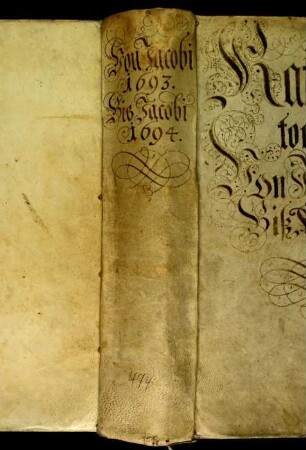 Von Jacobi
1693.
Bis Jacobi
1694.
494
Rai
ton
Von J
Biß